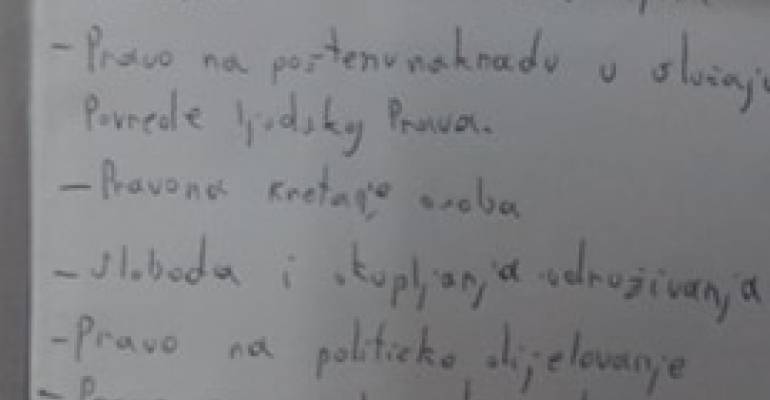 - Pravo na poštenu naknadu u slučaju
Povrede ljudsky Prava.
- Pravo na kretanje osoba
- Sloboda i skupljanja udruživanja
- Pravo na politicko dijelovanje